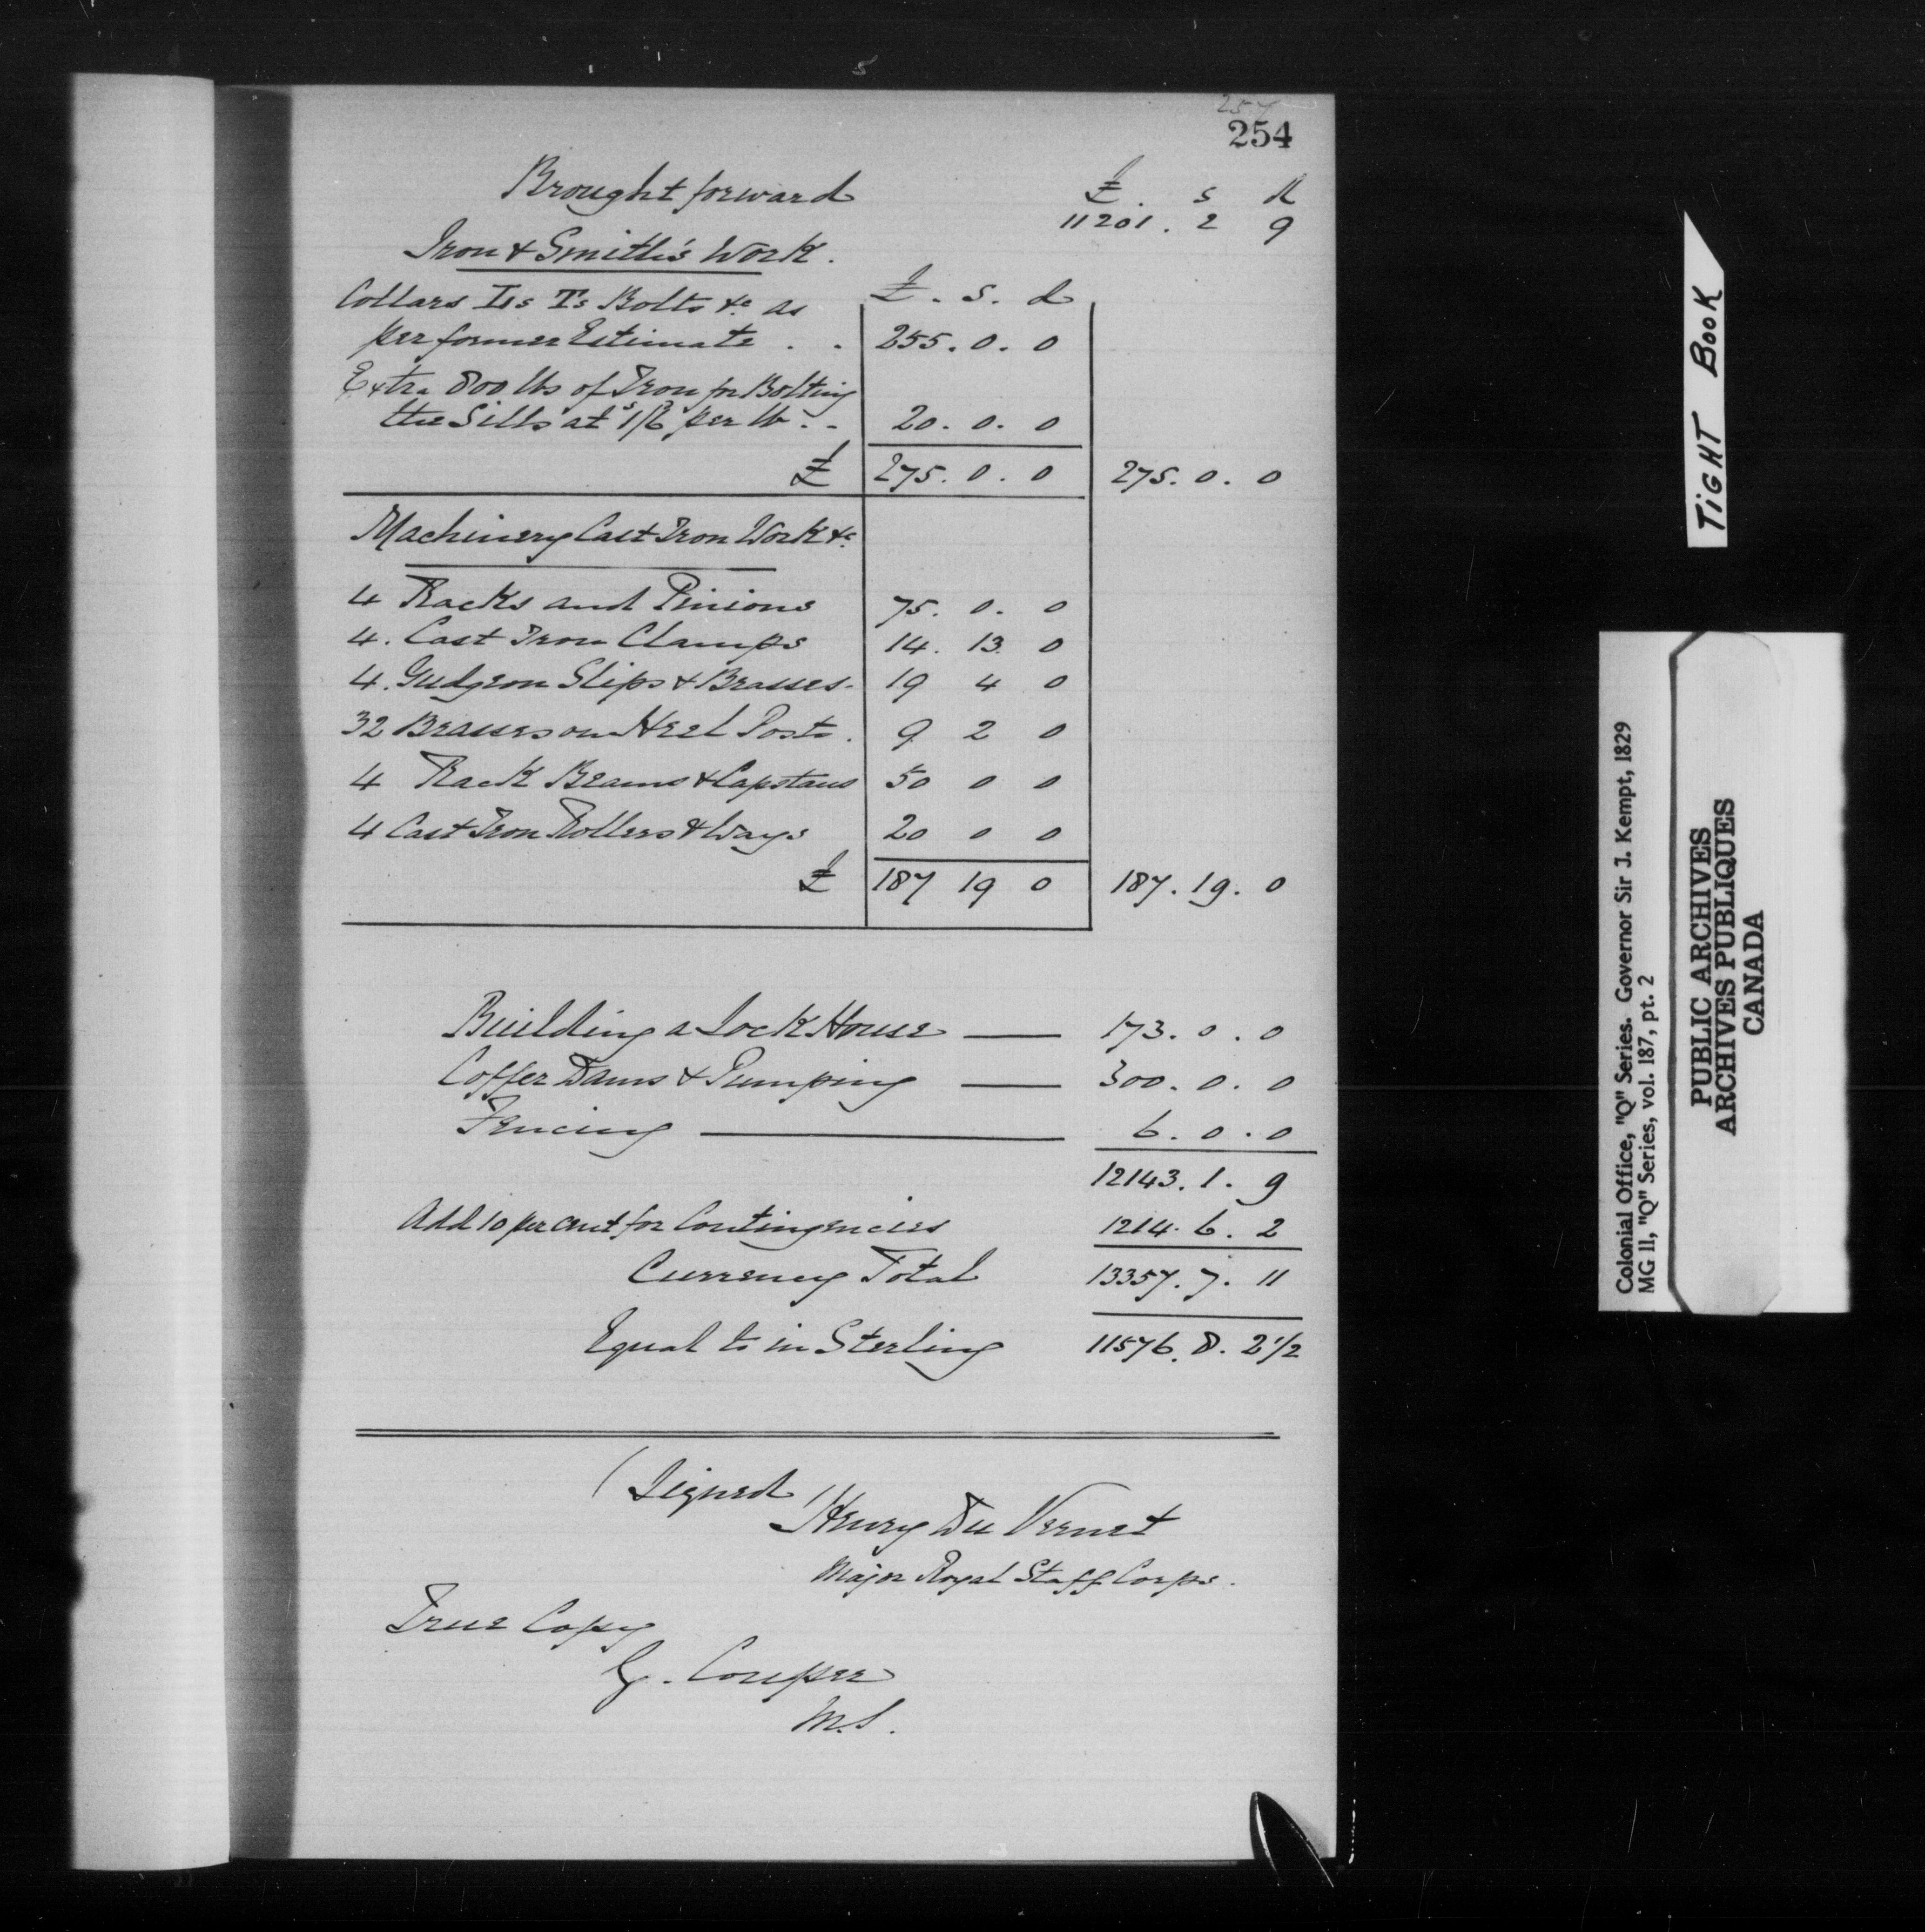 257
254
Brought forward £. s d
11201. 2 9
Iron & Smith's Work.
Collars Ls Ts Bolts &c as £. s. d
per former Estimate . . 255. 0. 0
Extra 800 lbs of Iron for Bolting
the Sills at per lb. . 20. 0. 0
£ 275. 0. 0 275. 0. 0
Machinery Cast Iron Work &c
4 Racks and Pinions 75. 0. 0
4. Cast Iron Clamps 14. 13. 0
4. Gudgeon Slips & Brasses. 19 4 0
32 Brasses on Heel Posts. 9 2 0
4 Rack Beams & Capstans 50 0 0
4 Cast Iron Rollers & Ways 20 0 0
£ 187 19 0 187. 19. 0
Building a Lock House — 173. 0. 0
Coffer Dams & Pumping — 300. 0. 0
Fencing — 6. 0. 0
12143. 1. 9
Add 10 per cent for Contingencies 1214. 6. 2
Currency Total 13357. 7. 11
Equal to in Sterling 11576. 8. 2 1/2
(Signed)
Henry Du Vernet
Major Royal Staff Corps.
True Copy
G. Couper
M.S.
TIGHT BOOK
Colonial Office, "Q" Series. Governor Sir J. Kempt, 1829
MG 11, "Q" Series, vol. 187, pt. 2
PUBLIC ARCHIVES
ARCHIVES PUBLIQUES
CANADA